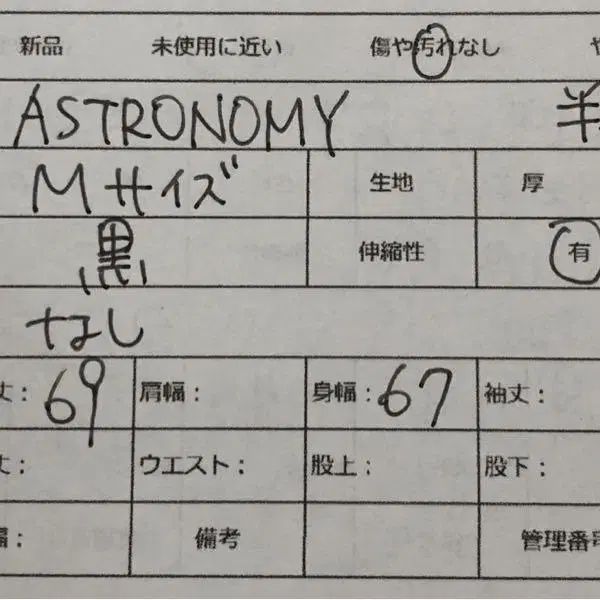 新品 未使用に近い 傷や汚れなし
ASTRONOMY
Mサイズ 生地 厚
黒 伸縮性 有
なし
丈: 69 肩幅: 身幅: 67 袖丈:
丈: ウエスト: 股上: 股下:
幅: 備考 管理番号